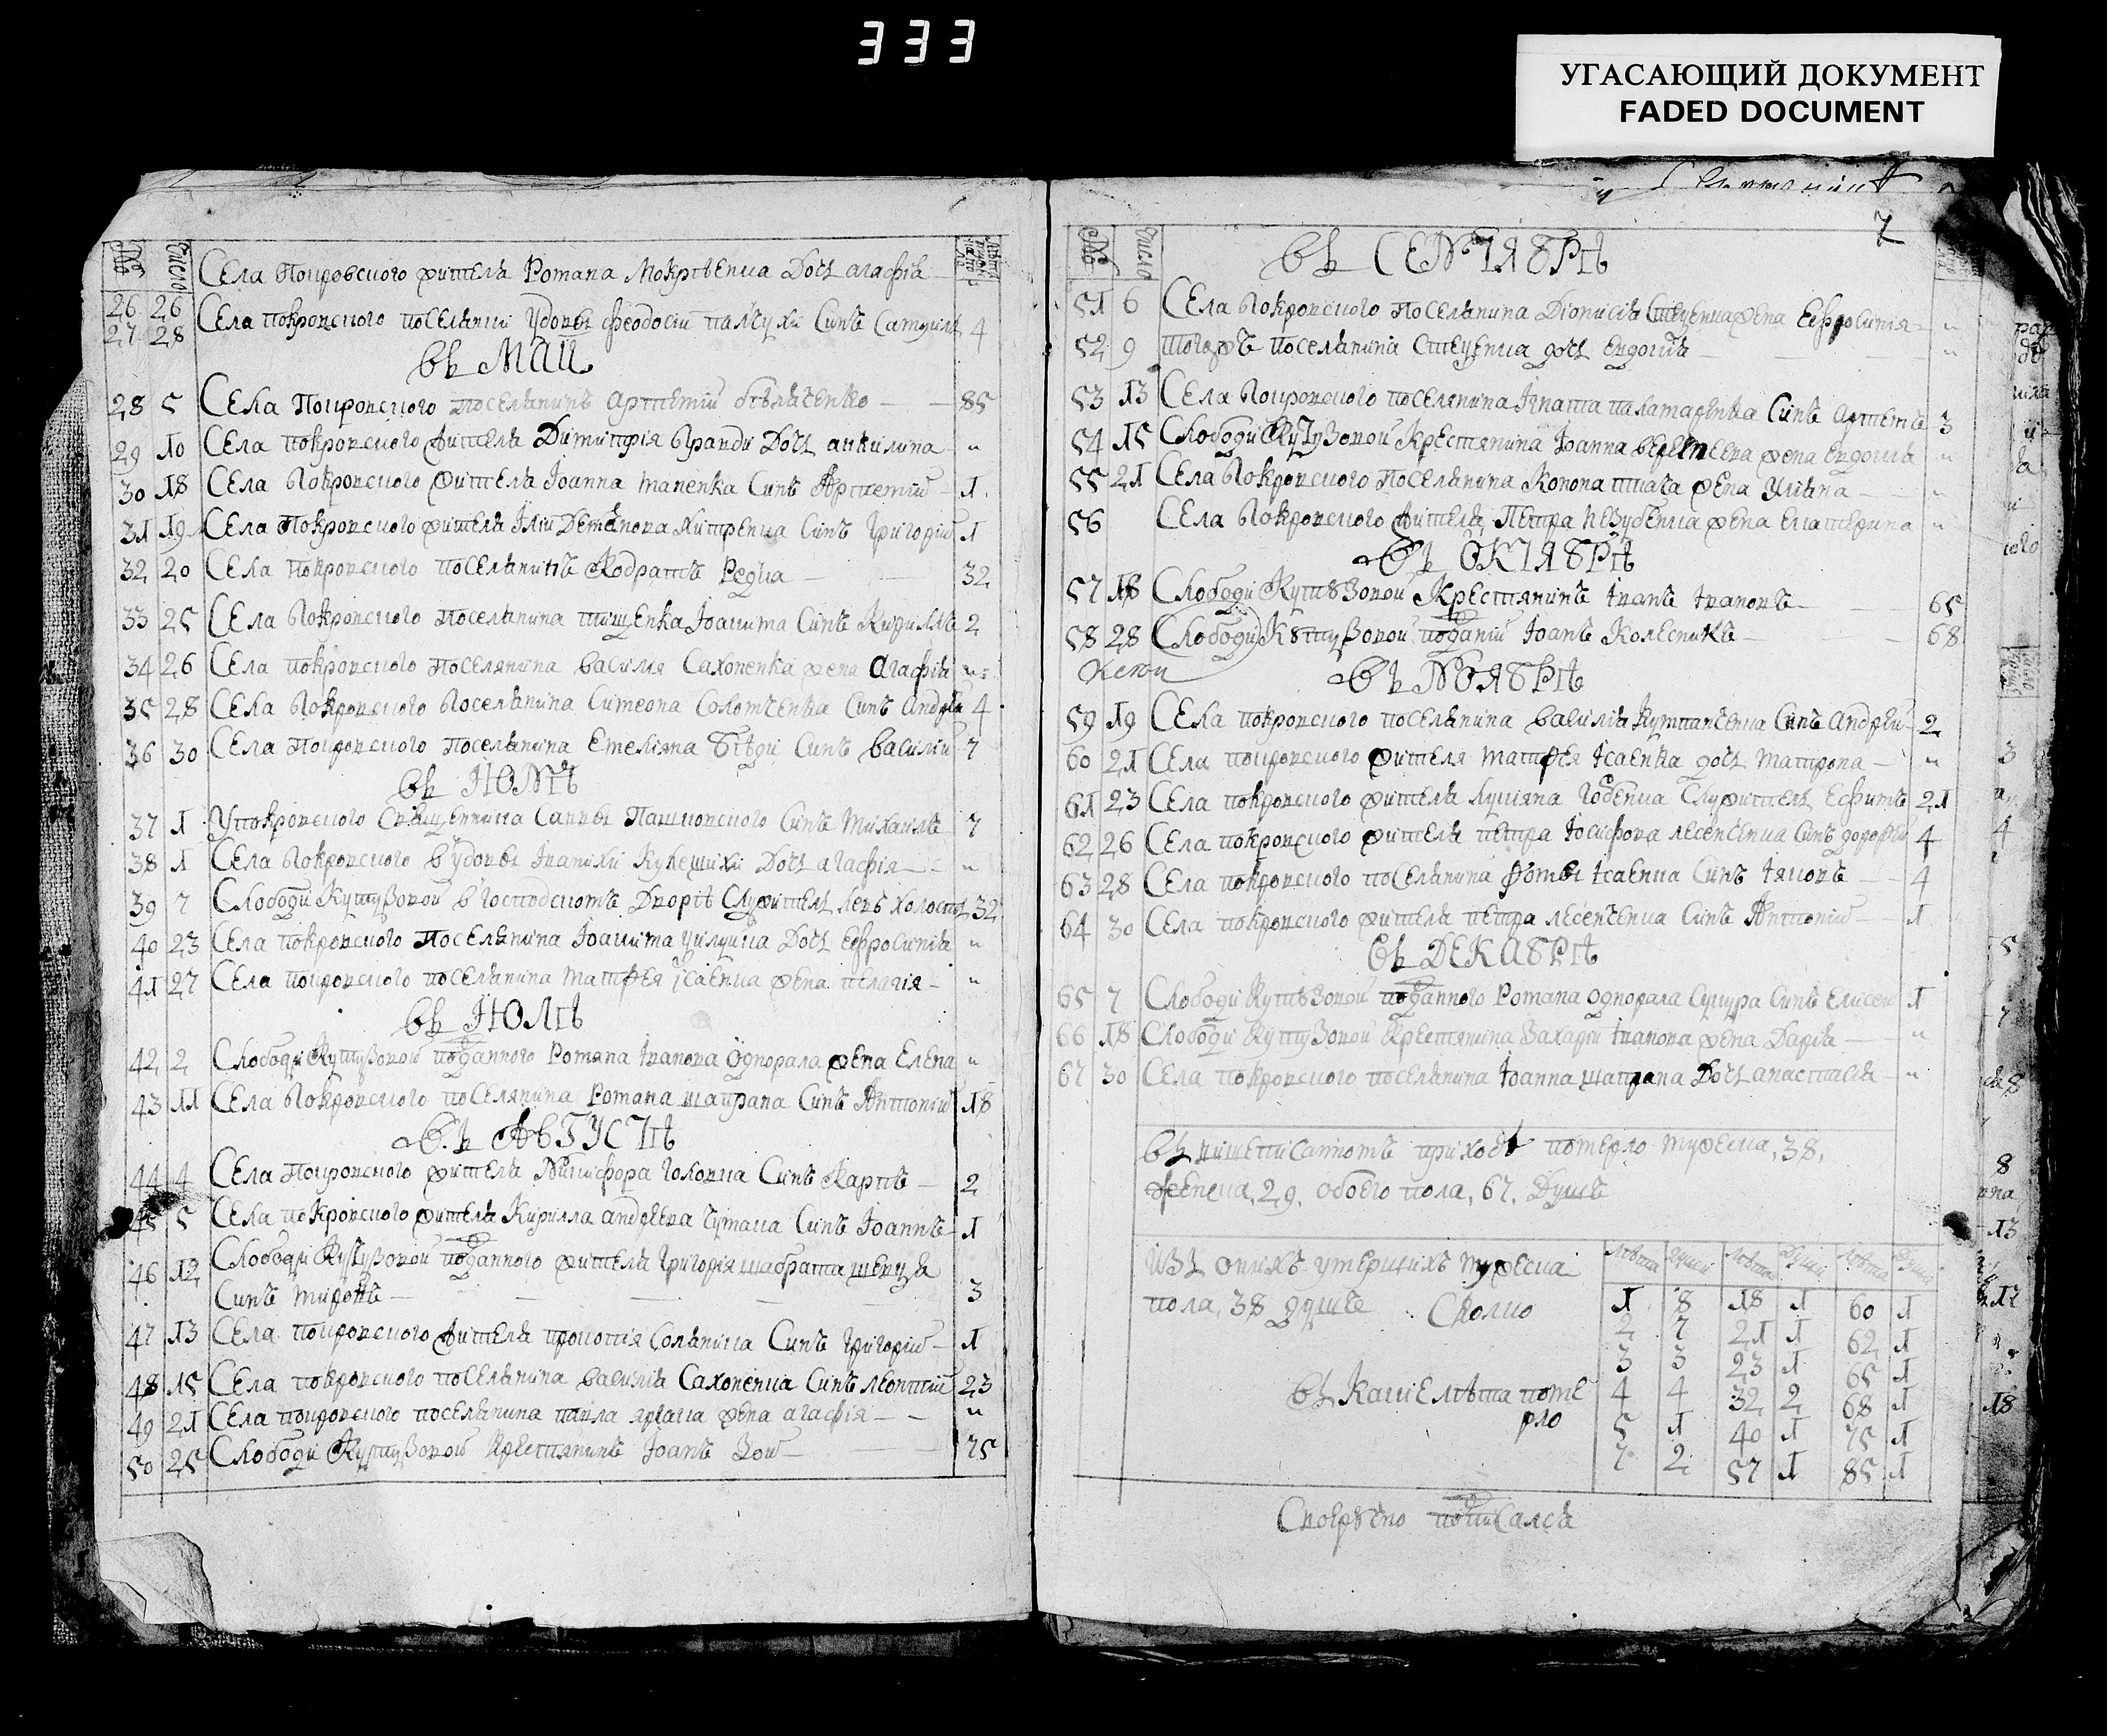 333
УГАСАЮЩИЙ ДОКУМЕНТ
FADED DOCUMENT
7
№ Число
26 26 Села Покровского жителя Романа Мокрѣенка Дочь агафія
27 28 Села покровского поселянки Удовы феодосіи Сынъ Самуилъ 4
въ МАИ
28 5 Села Покровского поселянинъ Артемій бѣляченко 85
29 10 Села покровского жителя Димитрія Дочь акилина "
30 18 Села Покровского жителя Іоанна Сынъ Артемій 1
31 19 Села Покровского жителя Іліи Демянова Хитренка Сынъ Григорій 1
32 20 Села покровского поселянинъ Кодратъ Редка 32
33 25 Села Покровского поселянина тищенка Іоакима Сынъ Кириллъ 2
34 26 Села покровского поселянина василия Сахоненка жена Агафія "
35 28 Села Покровского Поселянина Симеона Соломченка Сынъ Андрей 4
36 30 Села Покровского поселянина Емеліяна бѣди Сынъ василій 7
въ ІЮНѢ
37 1 Упокровского Священника Саввы Пашковского Сынъ Михаилъ 7
38 1 Села Покровского вудовы Іванихи Дочь агафія "
39 7 Слободи Кутузовой вГосподскомъ Дворѣ Служитель левъ холостъ 32
40 23 Села покровского Поселянина Іоакима Дочь ефросинія "
41 27 Села покровского поселянина Матфея ісаенка жена пелагія "
въ ІЮЛѢ
42 2 Слободи Кутузовой поданного Романа Іванова Однорала жена Елена "
43 11 Села Покровского поселянина Романа шапрана Сынъ Антоній 18
въ АВГУСТѢ
44 4 Села Покровского жителя Никифора Головка Сынъ Карпъ 2
45 5 Села покровского жителя Кирилла андреева чумака Сынъ Іоаннъ 1
46 12 Слободи Кутузовой поданного жителя Григорія шевца
Сынъ миронъ 3
47 13 Села покровского жителя прокопія Соляника Сынъ Григорій 1
48 15 Села покровского поселянина василія Сахоненка Сынъ леонтій 23
49 21 Села покровского поселянина павла жена агафія "
50 25 Слободи Кутузовой Крестянинъ Іоанъ Зой 75
№ Число
въ СЕНТЯБРѢ
51 6 Села Покровского поселянина Діонисія Стеценка жена Ефросинія "
52 9 тогожъ поселянина Стеценка дочь евдокія "
53 13 Села Покровского поселянина Ігната паламаренка Сынъ артемъ 3
54 15 Слободи Кутузовой Крестянина Іоанна веремеева жена евдокія "
55 21 Села Покровского Поселянина Конона ткача жена Уліяна "
56 Села Покровского жителя Петра незубенка жена екатерина "
въ ОКТЯБРѢ
57 18 Слободи Кутузовой Крестянинъ іванъ івановъ 65
58 28 Слободи Кутузовой поданій Іоанъ Колесникъ 68
въ НОЯБРѢ
59 19 Села покровского поселянина василія Сынъ андрей 2
60 21 Села покровского жителя матфея ісаенка дочь матрона "
61 23 Села покровского жителя лукіяна Служитель Ефимъ 21
62 26 Села покровского жителя петра Іосифова лесенченка Сынъ дорофей 4
63 28 Села покровского поселянина Фомы ісаенка Сынъ Іяковъ 4
64 30 Села покровского жителя петра лесенченка Сынъ Антоній 1
въ ДЕКАБРѢ
65 7 Слободи Кутузовой поданного Романа однорала Сынъ Елисей 1
66 18 Слободи Кутузовой Крестянина Захарія іванова жена Дарія "
67 30 Села покровского поселянина Іоанна шапрана Дочь анастасія "
въ вишеписаномъ приходѣ померло мужеска, 38,
женска, 29, обоего пола, 67, Душъ
Изъ онихъ умершихъ мужеска
пола, 38 душъ Сколко
въ Какіе лѣта поме
рло
Лѣта Души Лѣта Души Лѣта Души
1 8 18 1 60 1
2 7 21 1 62 1
3 3 23 1 65 1
4 4 32 2 68 1
5 1 40 1 75 1
7 2 57 1 85 1